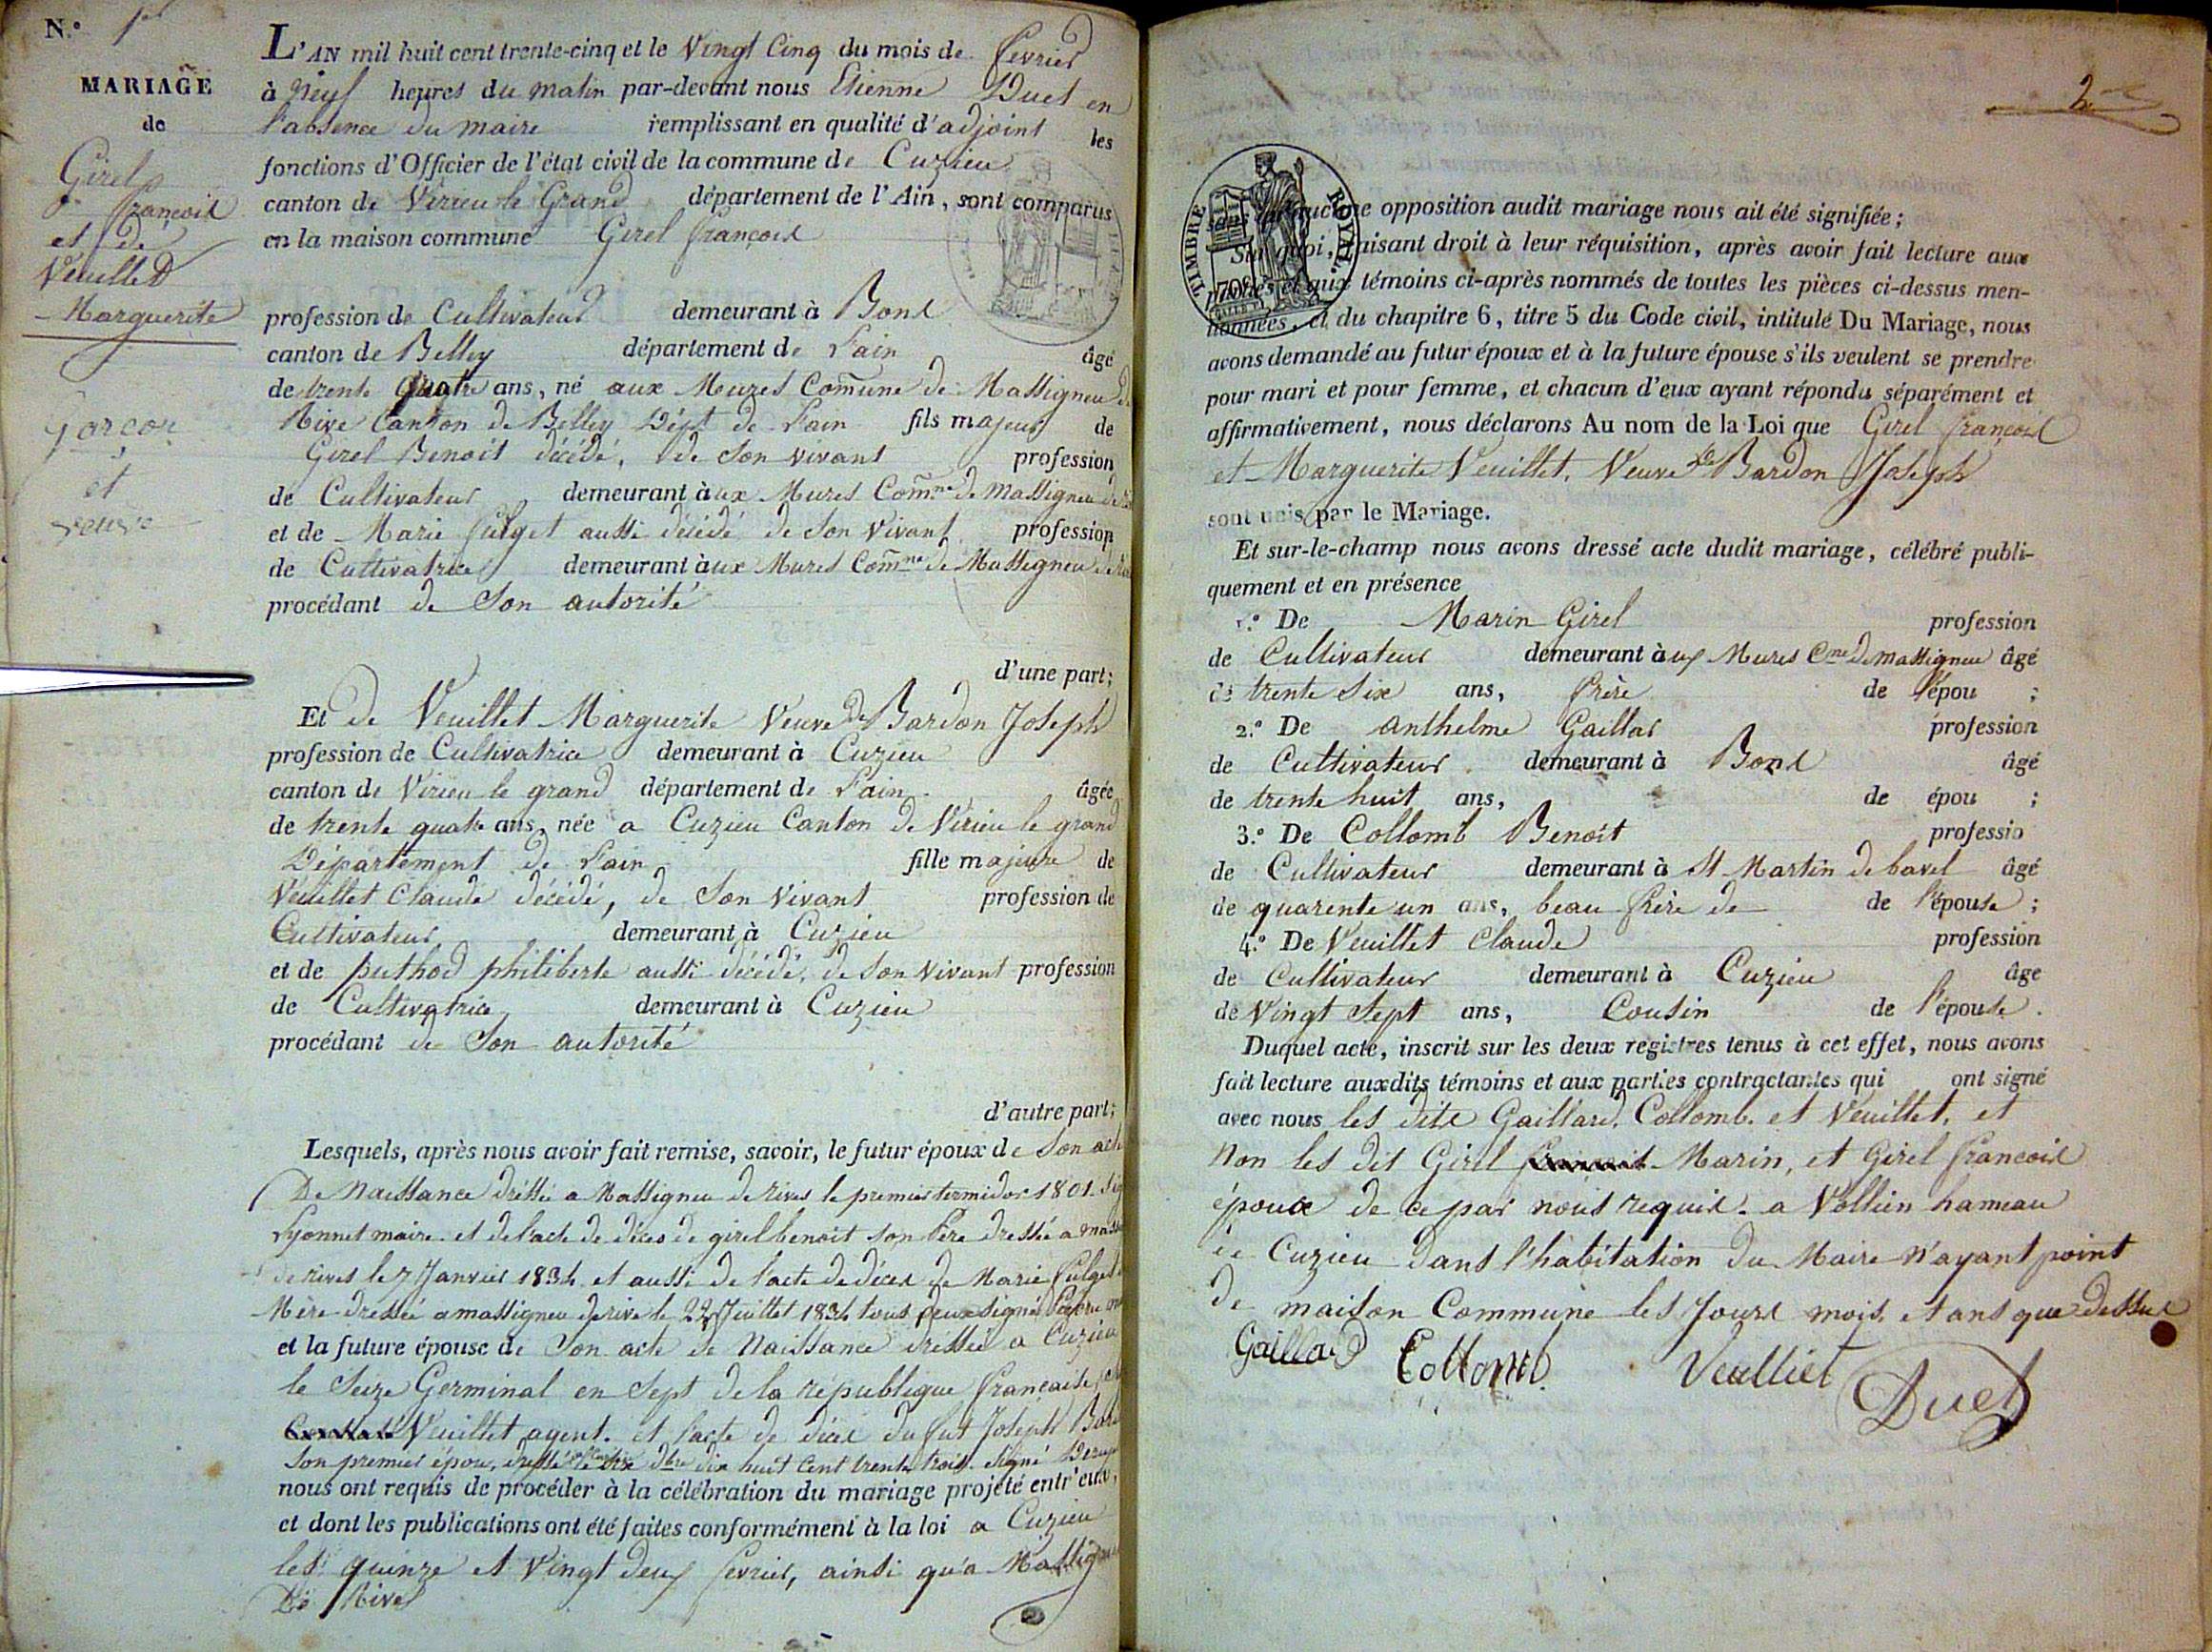 N.° 1er
MARIAGE
de
Girel
françois
et de
Veuillet
Marguerite
Garçon
et
veuve
L'AN mil huit cent trente-cinq et le Vingt Cinq du mois de fevrier
à Neuf heures du matin par-devant nous Etienne Duet en
l'absence du maire remplissant en qualité d'adjoint les
fonctions d'Officier de l'état civil de la commune de Cuzieu
canton de Virieu le Grand département de l'Ain, sont comparus
en la maison commune Girel françois
profession de Cultivateur demeurant à Bons
canton de Belley département de l'ain âgé
de trente quatre ans, né aux Mures Comune de Massigneu de
Rive Canton de Belley Dépt de l'ain fils majeur de
Girel Benoit décédé, de son vivant profession
de Cultivateur demeurant à ux Mures Comne de Massigneu de
et de Marie fulget aussi décédé de son vivant profession
de Cultivatrice demeurant à ux Mures Comne de Massigneu de
procédant de Son autorité
d'une part;
Et de Veuillet Marguerite Veuve de Bardon Joseph
profession de Cultivatrice demeurant à Cuzieu
canton de Virieu le grand département de l'ain âgée
de trente quatre ans, née a Cuzieu Canton de Virieu le grand
Département de l'ain fille majeure de
Veuillet Claude décédé, de son vivant profession de
Cultivateur demeurant à Cuzieu
et de puthod philiberte aussi décédé, de son vivant profession
de Cultivatrice demeurant à Cuzieu
procédant de Son autorité
d'autre part;
Lesquels, après nous avoir fait remise, savoir, le futur époux de Son acte
De Naissance dréssée a Massigneu de rives le premier termidor 1801. Sig
Lyonnet maire. et de l'acte de déces de girel benoit son Père dressée a mass
de rives le 7 Janvier 1834. et aussi de l'acte de déces de Marie fulget
Mère dressée a massigneu de rive le 22 Juillet 1834 tous deux signés
et la future épouse de Son acte de Naissance dréssée a Cuzieu
le Seize Germinal en Sept de la république française
Veuillet agent. et l'acte de déces du fut Joseph Bard
Son premier époux, dréssé le dix 9bre dix huit cent trente trois. signé
nous ont requis de procéder à la célébration du mariage projeté entr'eux,
et dont les publications ont été faites conformément à la loi a Cuzieu
les quinze et Vingt deux fevrier, ainsi qu'a Massigneu
De Rives
2me
TIMBRE ROYAL
70c
sans qu'aucune opposition audit mariage nous ait été signifiée;
Sur quoi, faisant droit à leur réquisition, après avoir fait lecture aux
parties et aux témoins ci-après nommés de toutes les pièces ci-dessus men-
tionnées, et du chapitre 6, titre 5 du Code civil, intitulé Du Mariage, nous
avons demandé au futur époux et à la future épouse s'ils veulent se prendre
pour mari et pour femme, et chacun d'eux ayant répondu séparément et
affirmativement, nous déclarons Au nom de la Loi que Girel françois
et Marguerite Veuillet, Veuve de Bardon Joseph
sont unis par le Mariage.
Et sur-le-champ nous avons dressé acte dudit mariage, célébré publi-
quement et en présence
1.° De Marin Girel profession
de Cultivateur demeurant à ux Mures Cne de massigneu âgé
de trente six ans, frère de l'épou ;
2.° De anthelme Gaillar profession
de Cultivateur demeurant à Bons âgé
de trente huit ans, de épou ;
3.° De Collomb Benoit professio
de Cultivateur demeurant à St Martin de bavel âgé
de quarente un ans, beau frère de de l'épouse ;
4.° De Veuillet Claude profession
de Cultivateur demeurant à Cuzieu âge
de Vingt Sept ans, Cousin de l'épouse.
Duquel acte, inscrit sur les deux registres tenus à cet effet, nous avons
fait lecture auxdits témoins et aux parties contractantes qui ont signé
avec nous les dits Gaillard, Collomb. et Veuillet, et
Non les dit Girel françois Marin, et Girel francois
époux de ce par nous requis. a Vollien hameau
de Cuzieu dans l'habitation du Maire n'ayant point
de maison Commune les Jours mois et ans que dessus
Gaillard Collomb Veulliet Duet